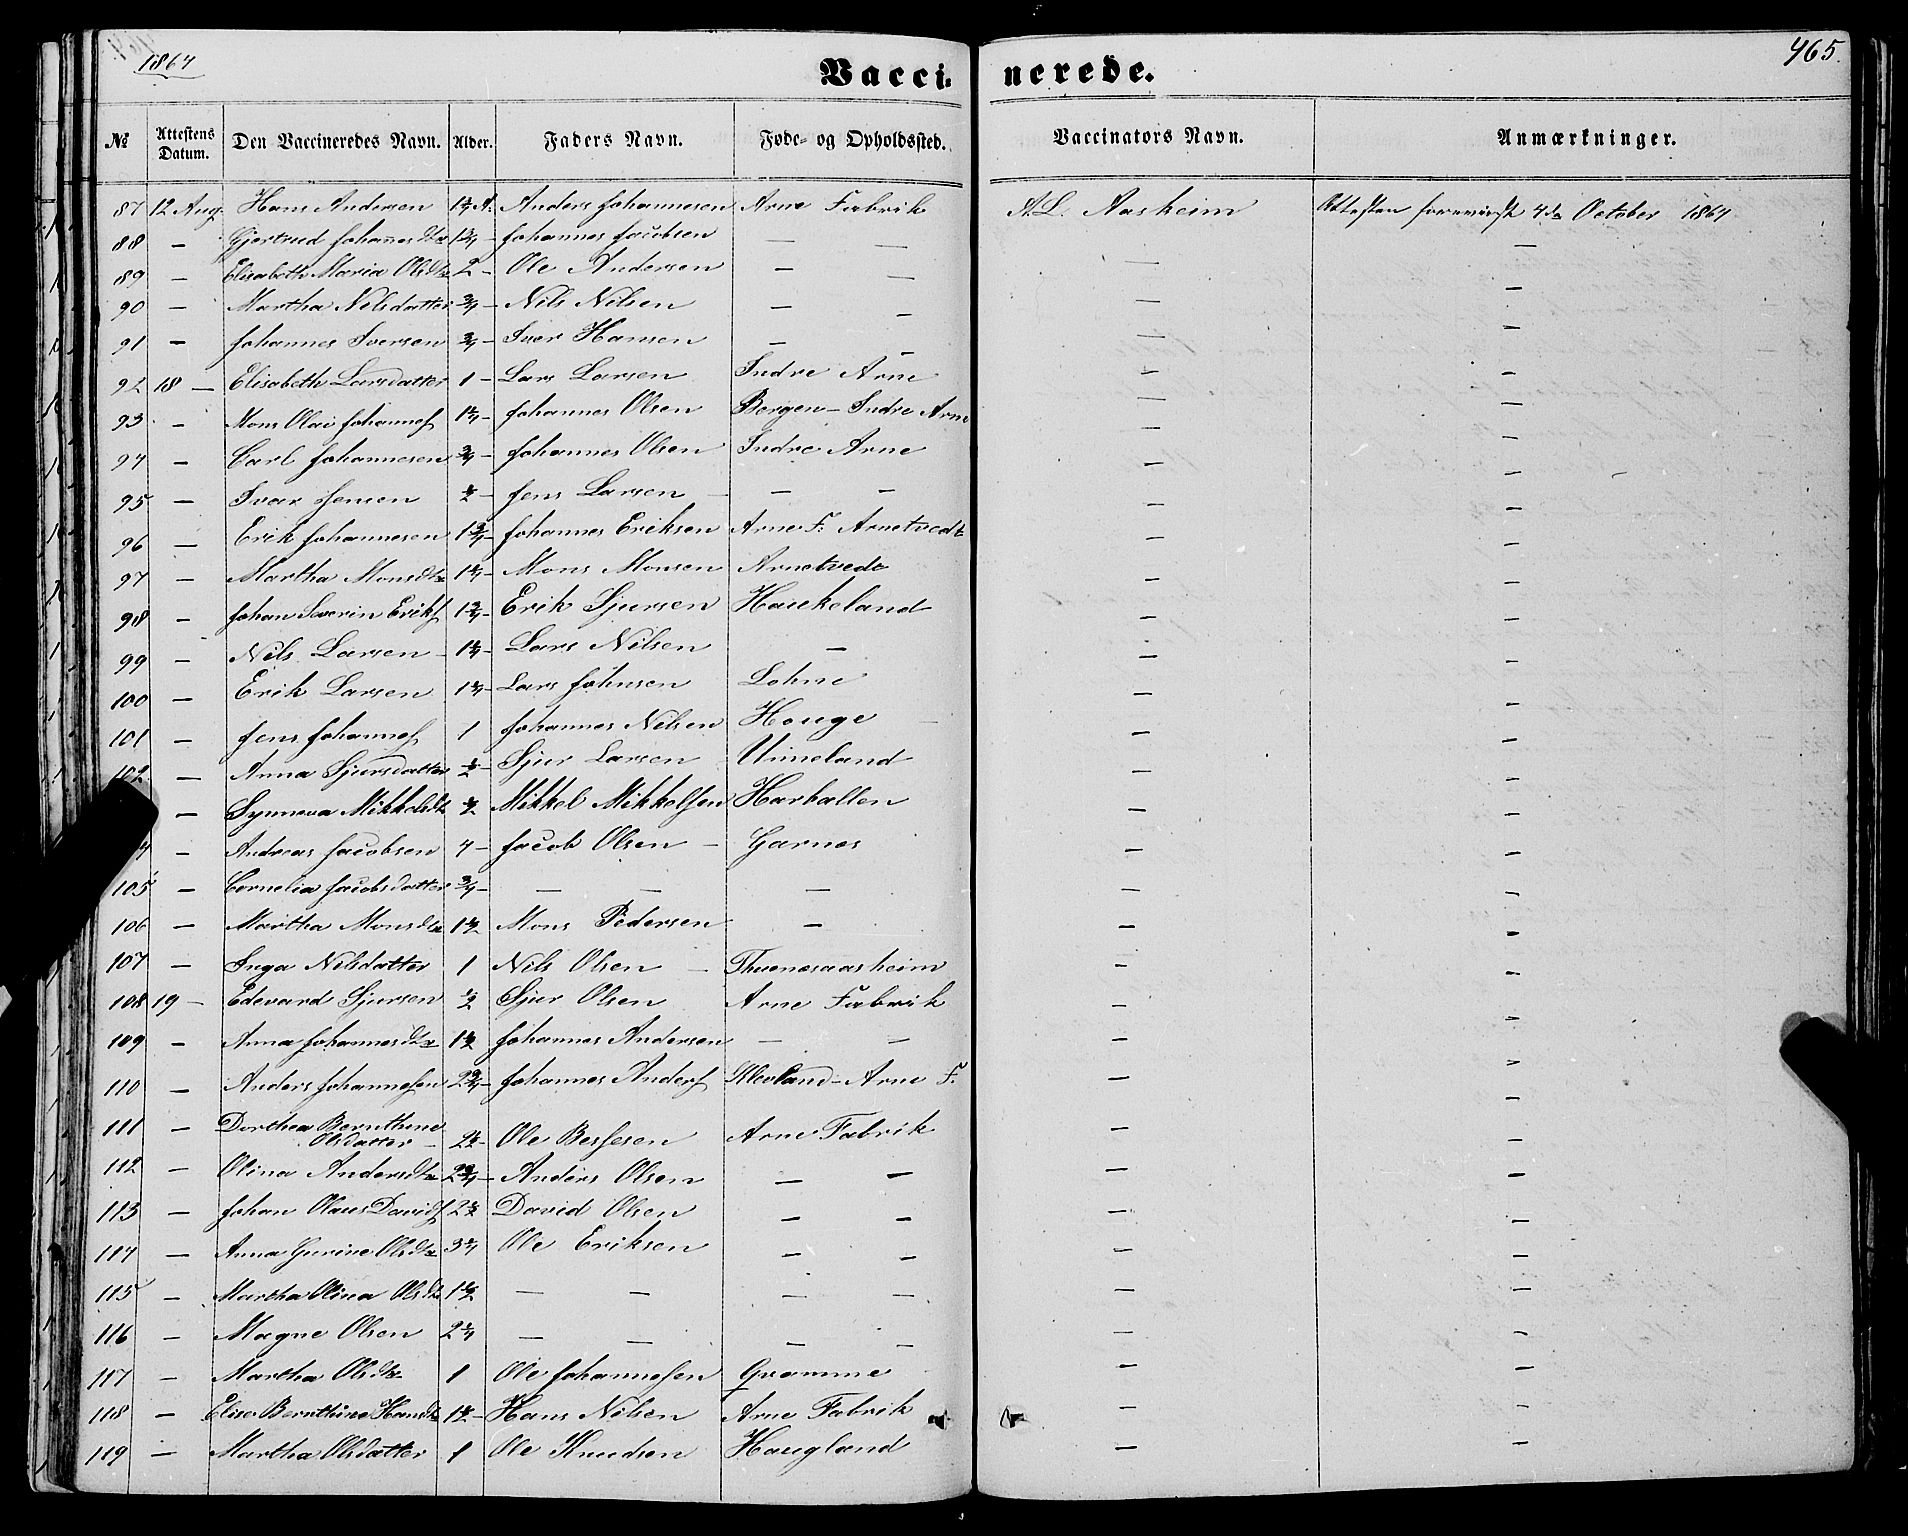 1864
465.
Vacci- nerede.
№ Attestens Datum. Den Vaccineredes Navn. Alder. Faders Navn. Føde- og Opholdssted. Vaccinators Navn. Anmærkninger.
87 12 Aug. Hans Andersen 1¼ A. Anders Johannesen Arne Fabrik A.L. Aasheim Attesten foreviist 4de October 1864
88 — Gjertrud Johannesdtr 1¼ — Johannes Jacobsen — — — —
89 — Elisabeth Maria Olsdtr 2 — Ole Andersen — — — —
90 — Martha Nilsdatter ¾ — Nils Nilsen — — — —
91 — Johannes Iversen ¾ — Iver Hansen — — — —
92 18 — Elisabeth Larsdatter 1 — Lars Larsen Indre Arne — —
93 — Mons Olai Johannes 1¼ — Johannes Olsen Bergen — Indre Arne — —
94 — Carl Johannesen ¾ — Johannes Olsen Indre Arne — —
95 — Ivar Jensen ½ — Jens Larsen — — — —
96 — Erik Johannesen 1¾ — Johannes Eriksen Arne F. Arnetvedt — —
97 — Martha Monsdtr 1¼ — Mons Monsen Arnetvedt — —
98 — Johan Severin Eriks 1¾ — Erik Sjursen Haukeland — —
99 — Nils Larsen — 1¼ — Lars Nilsen — — —
100 — Erik Larsen 1¼ — Lars Johnsen Lohne — —
101 — Jens Johannes 1 Johannes Nilsen Houge — —
102 — Anna Sjursdatter ½ — Sjur Larsen Unneland — —
— Synneva Mikkelsdtr ½ Mikkel Mikkelsen Harballen — —
4 — Andreas Jacobsen 4 — Jacob Olsen — Garnes — —
105 — Cornelia Jacobsdatter ¾ — — — — — —
106 — Martha Monsdtr 1½ Mons Pedersen — — —
107 — Inga Nilsdatter 1 Nils Olsen — Thuenesaasheim — —
108 19 — Edevard Sjursen ½ Sjur Olsen Arne Fabrik — —
109 — Anna Johannesdtr 1½ Johannes Andersen — — — —
110 — Anders Johannesen 2¾ — Johannes Anders Kleoland — Arne F. — —
111 — Dorthea Bernthine
Olsdatter — 2½ — Ole Bessesen Arne Fabrik — —
112 — Olina Andersdtr 2¾ — Anders Olsen — — — —
113 — Johan Olaus Davids 2½ David Olsen — — — —
114 — Anna Gurine Olsdtr 3¼ Ole Eriksen — — — —
115 — Martha Olina Olsdtr 1½ — — — — — —
116 — Magne Olsen 2¼ — — — — — —
117 — Martha Olsdtr 1 Ole Johannesen Gramme — —
118 — Elise Bernthine Hansdtr 1½ — Hans Nilsen Arne Fabrik — —
119 — Martha Olsdatter 1 Ole Knudsen Haugland — —